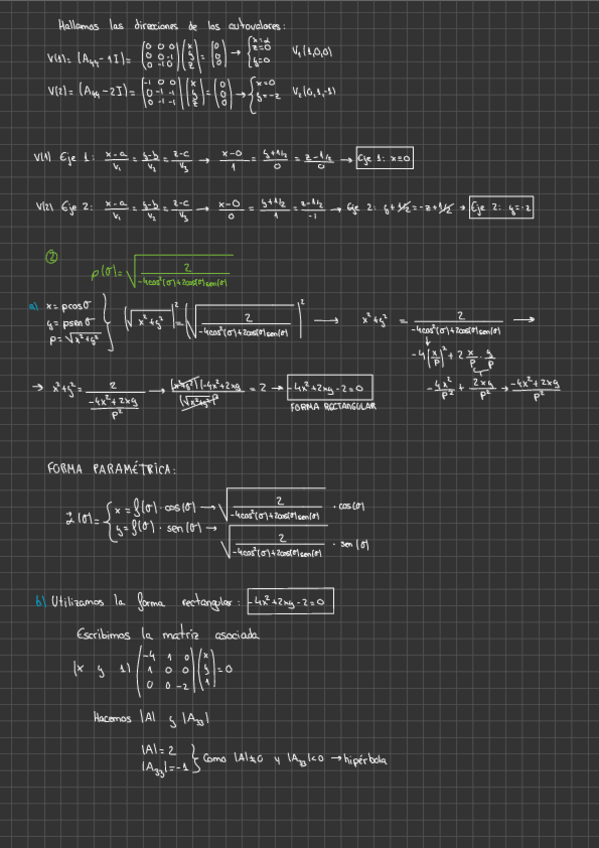 Hallamos las direcciones de los autovalores:
V(1) = (A₄₄ - 1I) = (0 0 0; 0 0 -1; 0 -1 0) (x; y; z) = (0; 0; 0) → { x=α; z=0; y=0 V₁(1,0,0)
V(2) = (A₄₄ - 2I) = (-1 0 0; 0 -1 -1; 0 -1 -1) (x; y; z) = (0; 0; 0) → { x=0; y=-z V₂(0,1,-1)
V(1) Eje 1: (x-a)/V₁ = (y-b)/V₂ = (z-c)/V₃ → (x-0)/1 = (y+1/2)/0 = (z-1/2)/0 → Eje 1: x=0
V(2) Eje 2: (x-a)/V₁ = (y-b)/V₂ = (z-c)/V₃ → (x-0)/0 = (y+1/2)/1 = (z-1/2)/-1 → Eje 2: y+1/2=-z+1/2 → Eje 2: y=-z
②
ρ(σ) = √(2/(-4cos²(σ)+2cos(σ)sen(σ)))
a) x=ρcosσ
y=ρsenσ
ρ=√(x²+y²)
(√(x²+y²))² = (√(2/(-4cos²(σ)+2cos(σ)sen(σ))))² → x²+y² = 2/(-4cos²(σ)+2cos(σ)sen(σ)) →
-4(x/ρ)²+2 x/ρ · y/ρ
→ x²+y² = 2/((-4x²+2xy)/ρ²) → (x²+y²)(-4x²+2xy)/(√(x²+y²))² = 2 → -4x²+2xy-2=0
-4x²/ρ² + 2xy/ρ² → (-4x²+2xy)/ρ²
FORMA RECTANGULAR
FORMA PARAMÉTRICA:
2(σ) = { x=f(σ)·cos(σ) → √(2/(-4cos²(σ)+2cos(σ)sen(σ))) · cos(σ)
y=f(σ)·sen(σ) → √(2/(-4cos²(σ)+2cos(σ)sen(σ))) · sen(σ)
b) Utilizamos la forma rectangular: -4x²+2xy-2=0
Escribimos la matriz asociada
(x y 1) (-4 1 0; 1 0 0; 0 0 -2) (x; y; 1) = 0
Hacemos |A| y |A₃₃|
|A|=2
|A₃₃|=-1 } Como |A|≠0 y |A₃₃|<0 → hipérbola